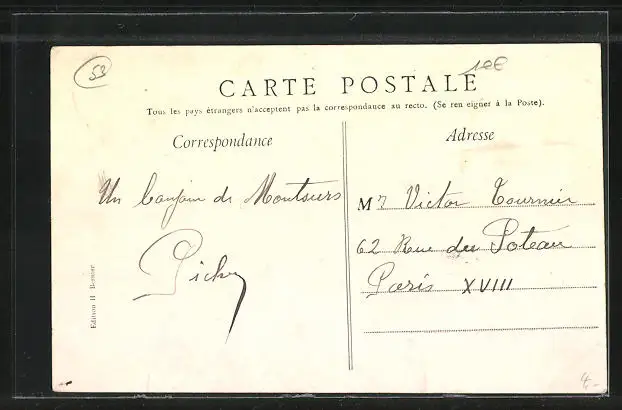 53
10€
CARTE POSTALE
Tous les pays étrangers n'acceptent pas la correspondance au recto. (Se ren eigner à la Poste).
Correspondance
Un bonjour de Montsurs
Pichy
Edition H
Adresse
Mr Victor Tournier
62 Rue du Poteau
Paris XVIII
4.-